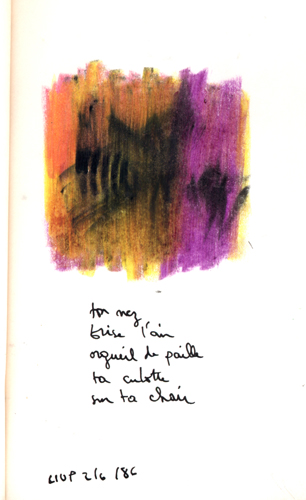 ton nez
brise l'air
orgueil de paille
ta culotte
sur ta chair
2/6 /86